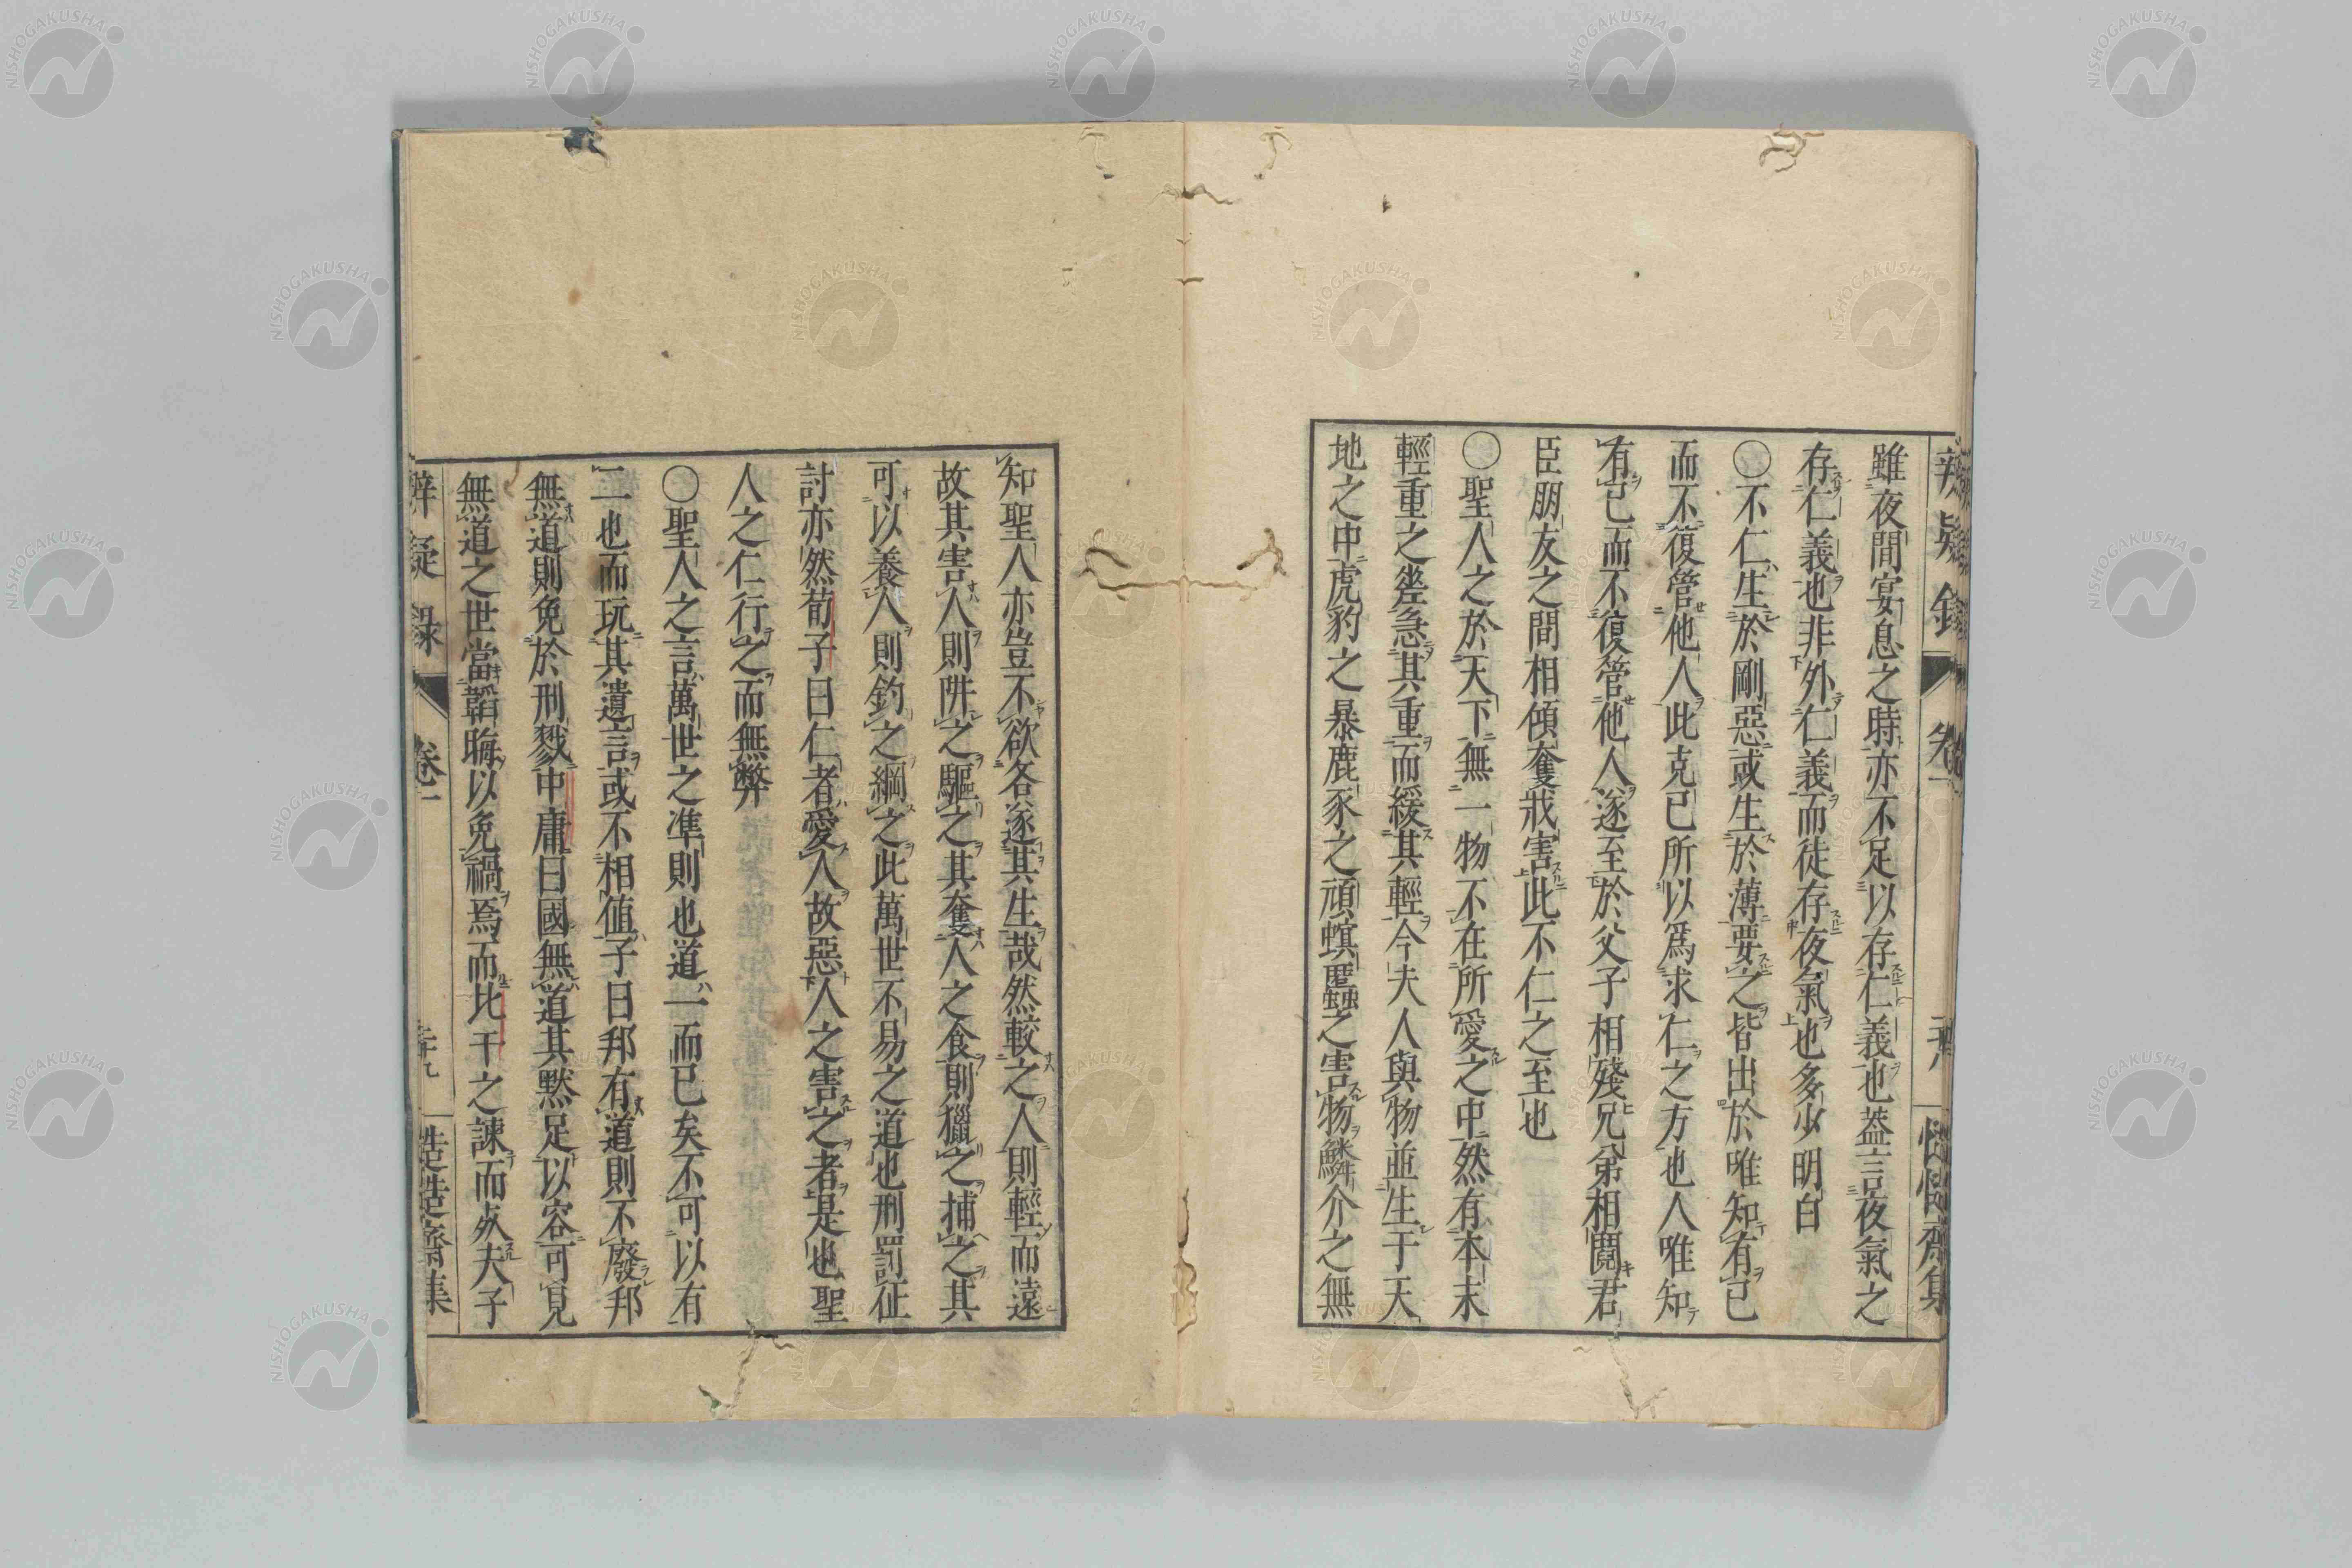 雖夜間宴息之時亦不足以存仁義也蓋言夜氣之
存仁義也非外仁義而徒存夜氣也多少明白
〇不仁生於剛惡或生於薄要之皆出於唯知有己
而不復管他人此克己所以爲求仁之方也人唯知
有己而不復管他人遂至於父子相殘兄弟相鬩君
臣朋友之間相傾奪戕害此不仁之至也
〇聖人之於天下無一物不在所愛之中然有本末
輕重之差急其重而緩其輕今夫人與物並生于天
地之中虎豹之暴鹿豕之頑螟䘌之害物鱗介之無
知聖人亦豈不欲各遂其生哉然較之人則輕而遠
故其害人則阱之驅之其奪人之食則獵之捕之其
可以養人則釣之綱之此萬世不易之道也刑罰征
討亦然荀子曰仁者愛人故惡人之害之者是也聖
人之仁行之而無弊
〇聖人之言萬世之準則也道一而已矣不可以有
二也而玩其遺言或不相値子曰邦有道則不廢邦
無道則免於刑戮中庸曰國無道其默足以容可見
無道之世當韜晦以免禍焉而比干之諫而死夫子
辨疑録 卷一 慥慥齋集